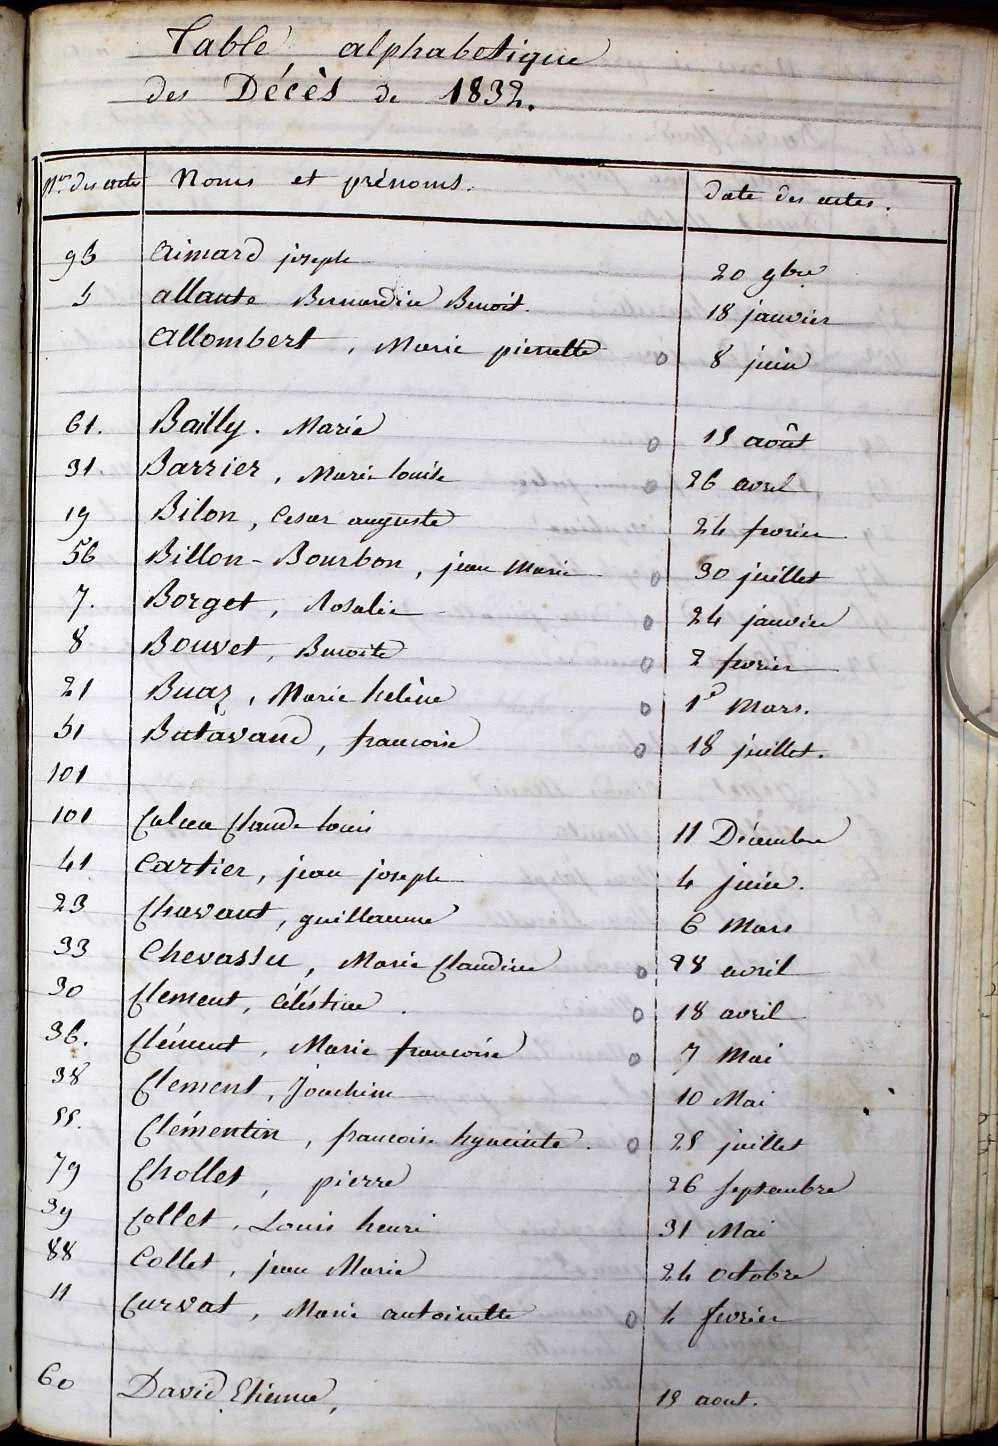 Table alphabetique
des Décès de 1832.
Nos des actes Noms et prénoms. date des actes.
96 Aimard joseph 20 9bre
5 allante Bernardin Benoit. 18 janvier
allombert, Marie pierrette o 8 juin
61. Bailly. Marie o 15 août
31. Barrier, Marie louise o 26 avril
19 Bilon, Cesar auguste 24 fevrier
56 Billon-Bourbon, jean Marie o 30 juillet
7. Borget, Rosalie o 24 janvier
8 Bouvet, Benoite o 2 fevrier
21 Buaz, Marie helène o 1er Mars.
51 Butavand, francoise o 18 juillet.
101
101 Claude louis 11 Décembre
41 Cartier, jean joseph 4 juin.
23 Chavant, guillaume 6 Mars
33 Chevassu, Marie Claudine o 28 avril
30 Clement, Céléstine. o 18 avril
36. Clément, Marie francoise o 7 Mai
38 Clement, Joachim 10 Mai
55. Clémentin, francoise hyacinte. o 25 juillet
79 Chollet, pierre 26 Septembre
39 Collet, Louis henri 31 Mai
88 Collet, jean Marie 24 octobre
11 Curvat, Marie antoinette o 4 fevrier
60 David, Etienne, 15 aout.